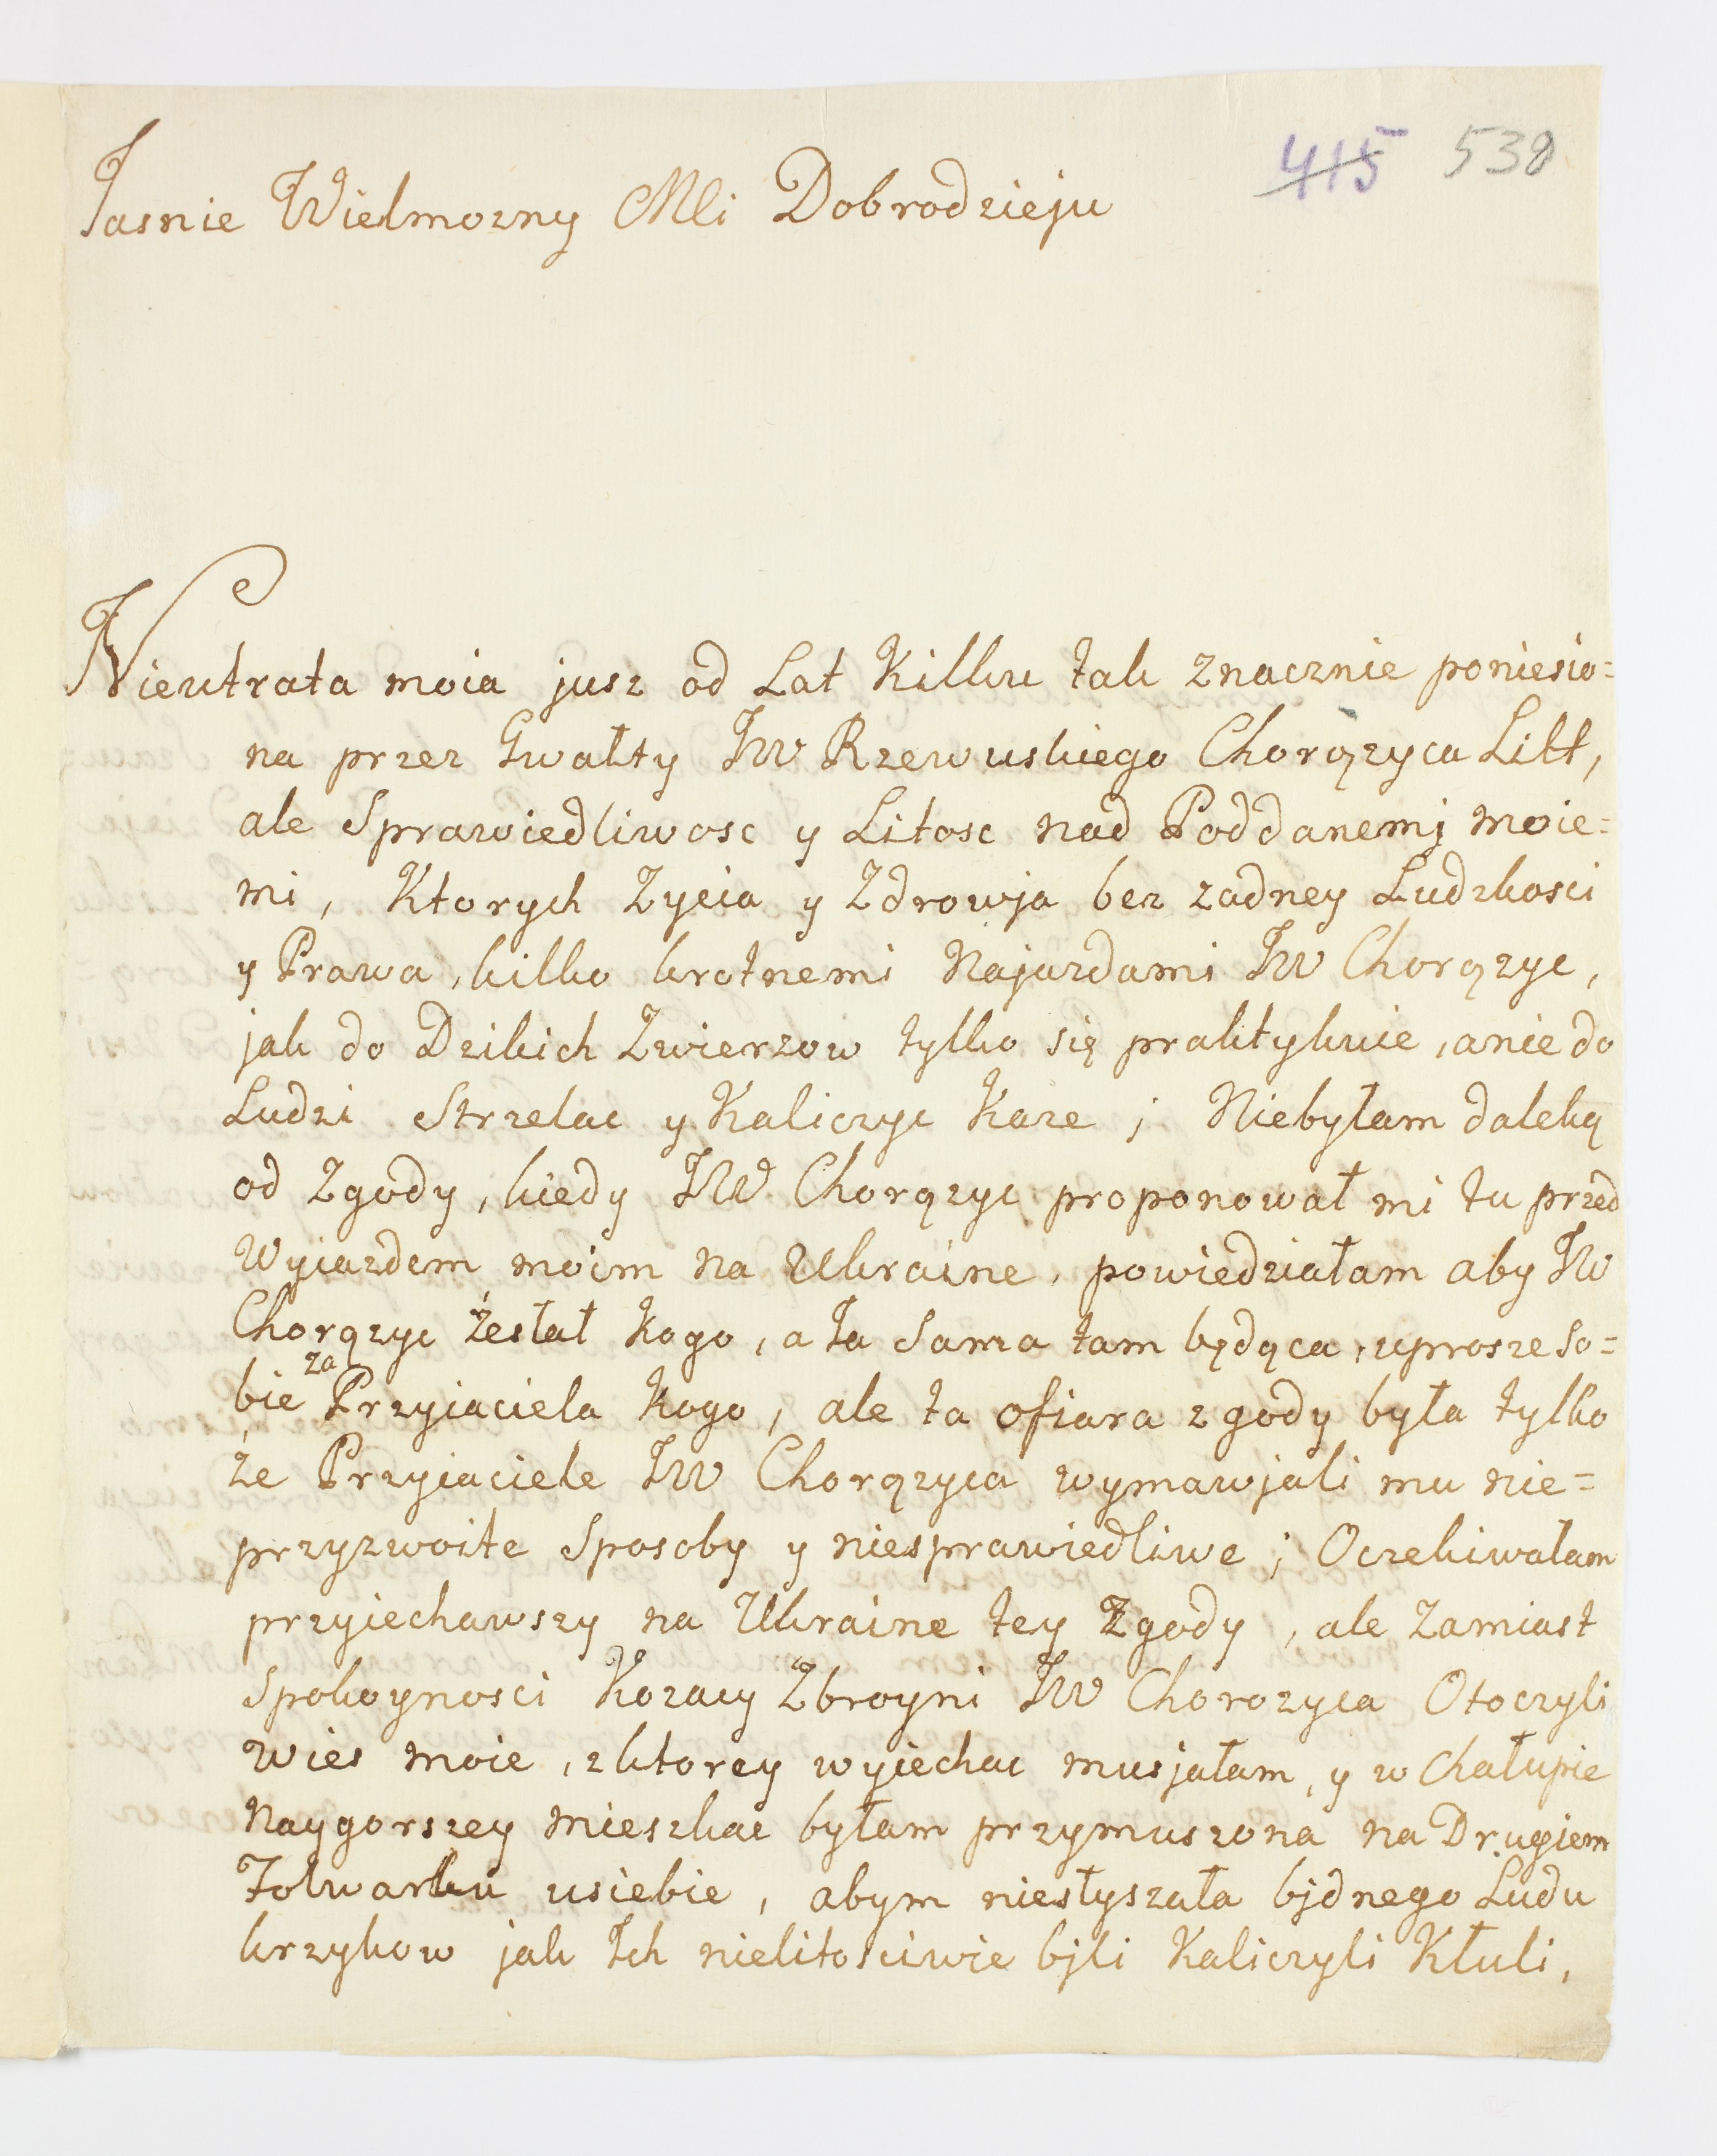 415 538
Jasnie Wielmozny Mli Dobrodzieju
Nieutrata moia jusz od Lat Kilku tak znacznie poniesio=
na przez Gwałty JW Rzewuskiego Chorązyca Litt,
ale Sprawiedliwosc y Litosc nad Poddanemi moie=
mi, Ktorych Zycia y Zdrowja bez zadney Ludzkosci
y Prawa, kilko krotnemi Najazdami JW Chorązyc,
jak do Dzikich Zwierzow tylko się praktykuie, anie do
Ludzi Strzelac y Kaliczyc Kaze; Niebyłam daleką
od Zgody, kiedy JW Chorązyc proponował mi tu przed
Wyiazdem moim na Ukraine, powiedziałam aby JW
Chorązyc żesłał kogo, a Ja Sama tam będąca, uprosze So=
bie za Przyiaciela kogo, ale ta ofiara zgody była tylko
że Przyiaciele JW Chorązyca wymawjali mu nie=
przyzwoite Sposoby y niesprawiedliwe; Oczekiwałam
przyiechawszy na Ukraine tey Zgody, ale zamiast
Spokoynosci Kozacy Zbroyni JW Chorozyca Otoczyli
wies moie, zktorey wyiechac musjałam, y w Chałupie
Naygorszey mieszkac byłam przymuszona na Drugiem
Folwarku usiebie, abym niesłyszała bjdnego Ludu
krzykow jak Ich nielitosciwie bjli Kaliczyli Kłuli,